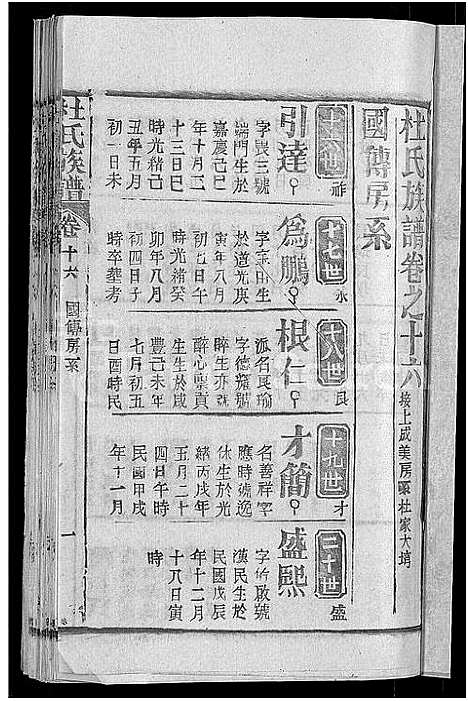 杜氏族譜卷之十六 接上成美房系杜家大塆
國傳房系
十六世 祚
引達
字喪三號
端門生於
嘉慶己巳
年十月二
十三日巳
時光緒己
丑年五月
初一日未
十七世 永
為鵬
於道光庚
寅年八月
初七日午
時光緒癸
卯年八月
初四日子
時卒塟考
十八世 良
根仁
派名良瑜
字德耀號
睟生亦號
醉心稟貢
生生於咸
豐己未年
七月初五
日酉時民
十九世 才
才簡
名善祥字
應時號逸
休生於光
緒丙戌年
五月二十
四日午時
民國甲戌
年十一月
二十世 盛
盛熙
字竹啟號
漢民生於
民國戊辰
年十二月
十八日寅
時
杜氏族譜 卷十六 國傳房系 一